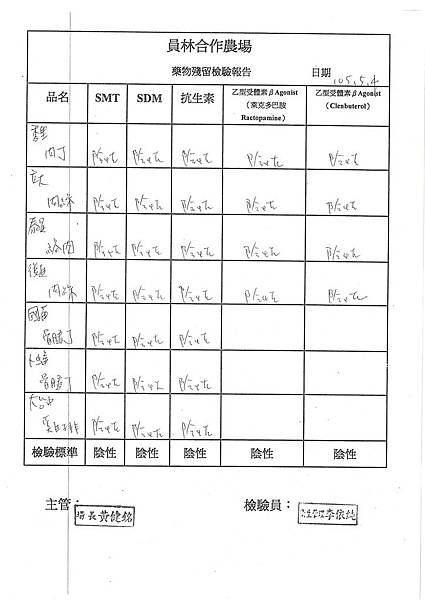 員林合作農場
藥物殘留檢驗報告 日期 105.5.4
品名 SMT SDM 抗生素 乙型受體素βAgonist（萊克多巴胺 Ractopamine） 乙型受體素βAgonist (Clenbuterol)
肉丁 陰性 陰性 陰性 陰性 陰性
肉絲 陰性 陰性 陰性 陰性 陰性
絞肉 陰性 陰性 陰性 陰性 陰性
肉絲 陰性 陰性 陰性 陰性 陰性
骨腿丁 陰性 陰性 陰性
骨腿丁 陰性 陰性 陰性
陰性 陰性 陰性
檢驗標準 陰性 陰性 陰性 陰性 陰性
主管： 場長黃健銘 檢驗員： 李依純